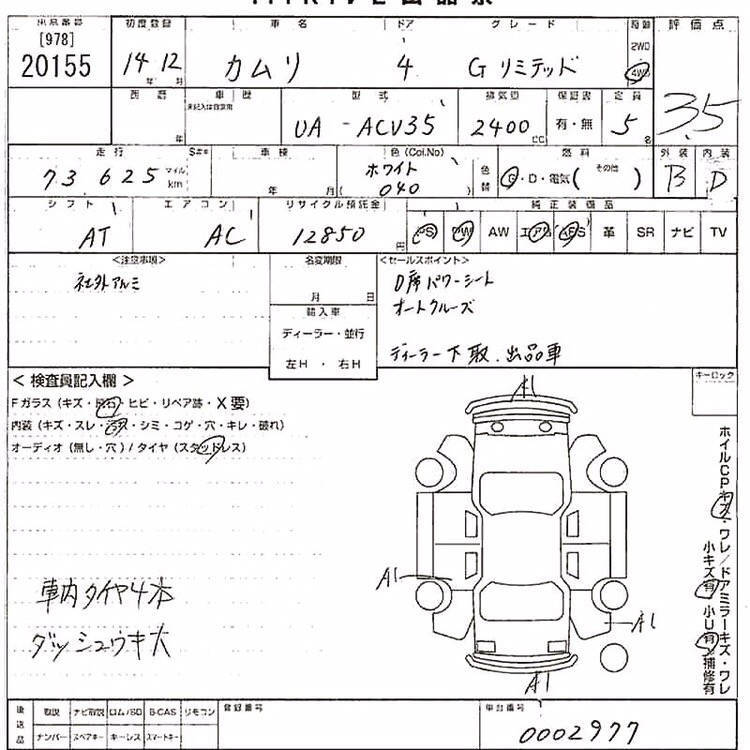 出品番号 初度登録 車名 ドア グレード 駆動 評価点
[978] 20155 14年 12月 カムリ 4 G リミテッド 2WD 4WD 3.5
西暦 年 車歴 未記入は自家用 型式 UA - ACV35 排気量 2400 CC 保証書 有・無 定員 5名
走行 73,625 マイル km S## 車検 年 月 色(Col.No) ホワイト (040) 色替 燃料 G・D・電気( その他 ) 外装 B 内装 D
シフト AT エアコン AC リサイクル預託金 12850円 純正装備品 PS PW AW エアB ABS 革 SR ナビ TV
<注意事項> 名変期限 <セールスポイント>
社外アルミ 月 日 D席パワーシート
輸入車 オートクルーズ
ディーラー・並行
左H ・ 右H ディーラー下取.出品車
< 検査員記入欄 > キーロック
Fガラス (キズ・飛石・ヒビ・リペア跡・X要)
内装 (キズ・スレ・汚れ・シミ・コゲ・穴・キレ・破れ)
オーディオ (無し・穴) / タイヤ (スタッドレス)
A1
A1
A1
A1
ホイルCPキズ・ワレ/ドアミラーキズ・ワレ
小キズ有 小U有 補修有
車内タイヤ4本
ダッシュウキ大
後送品 取説 ナビ取説 ロム/SD B-CAS リモコン 登録番号 車台番号
ナンバー スペアキー キーレス スマートキー 0002977